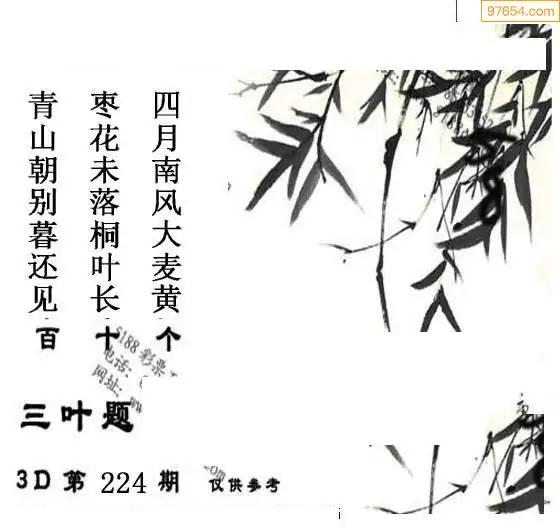 97654.com
四月南风大麦黄
枣花未落桐叶长
青山朝别暮还见
百 十 个
5188 彩票
电话:
网址:
三叶题
3D 第 224 期 仅供参考